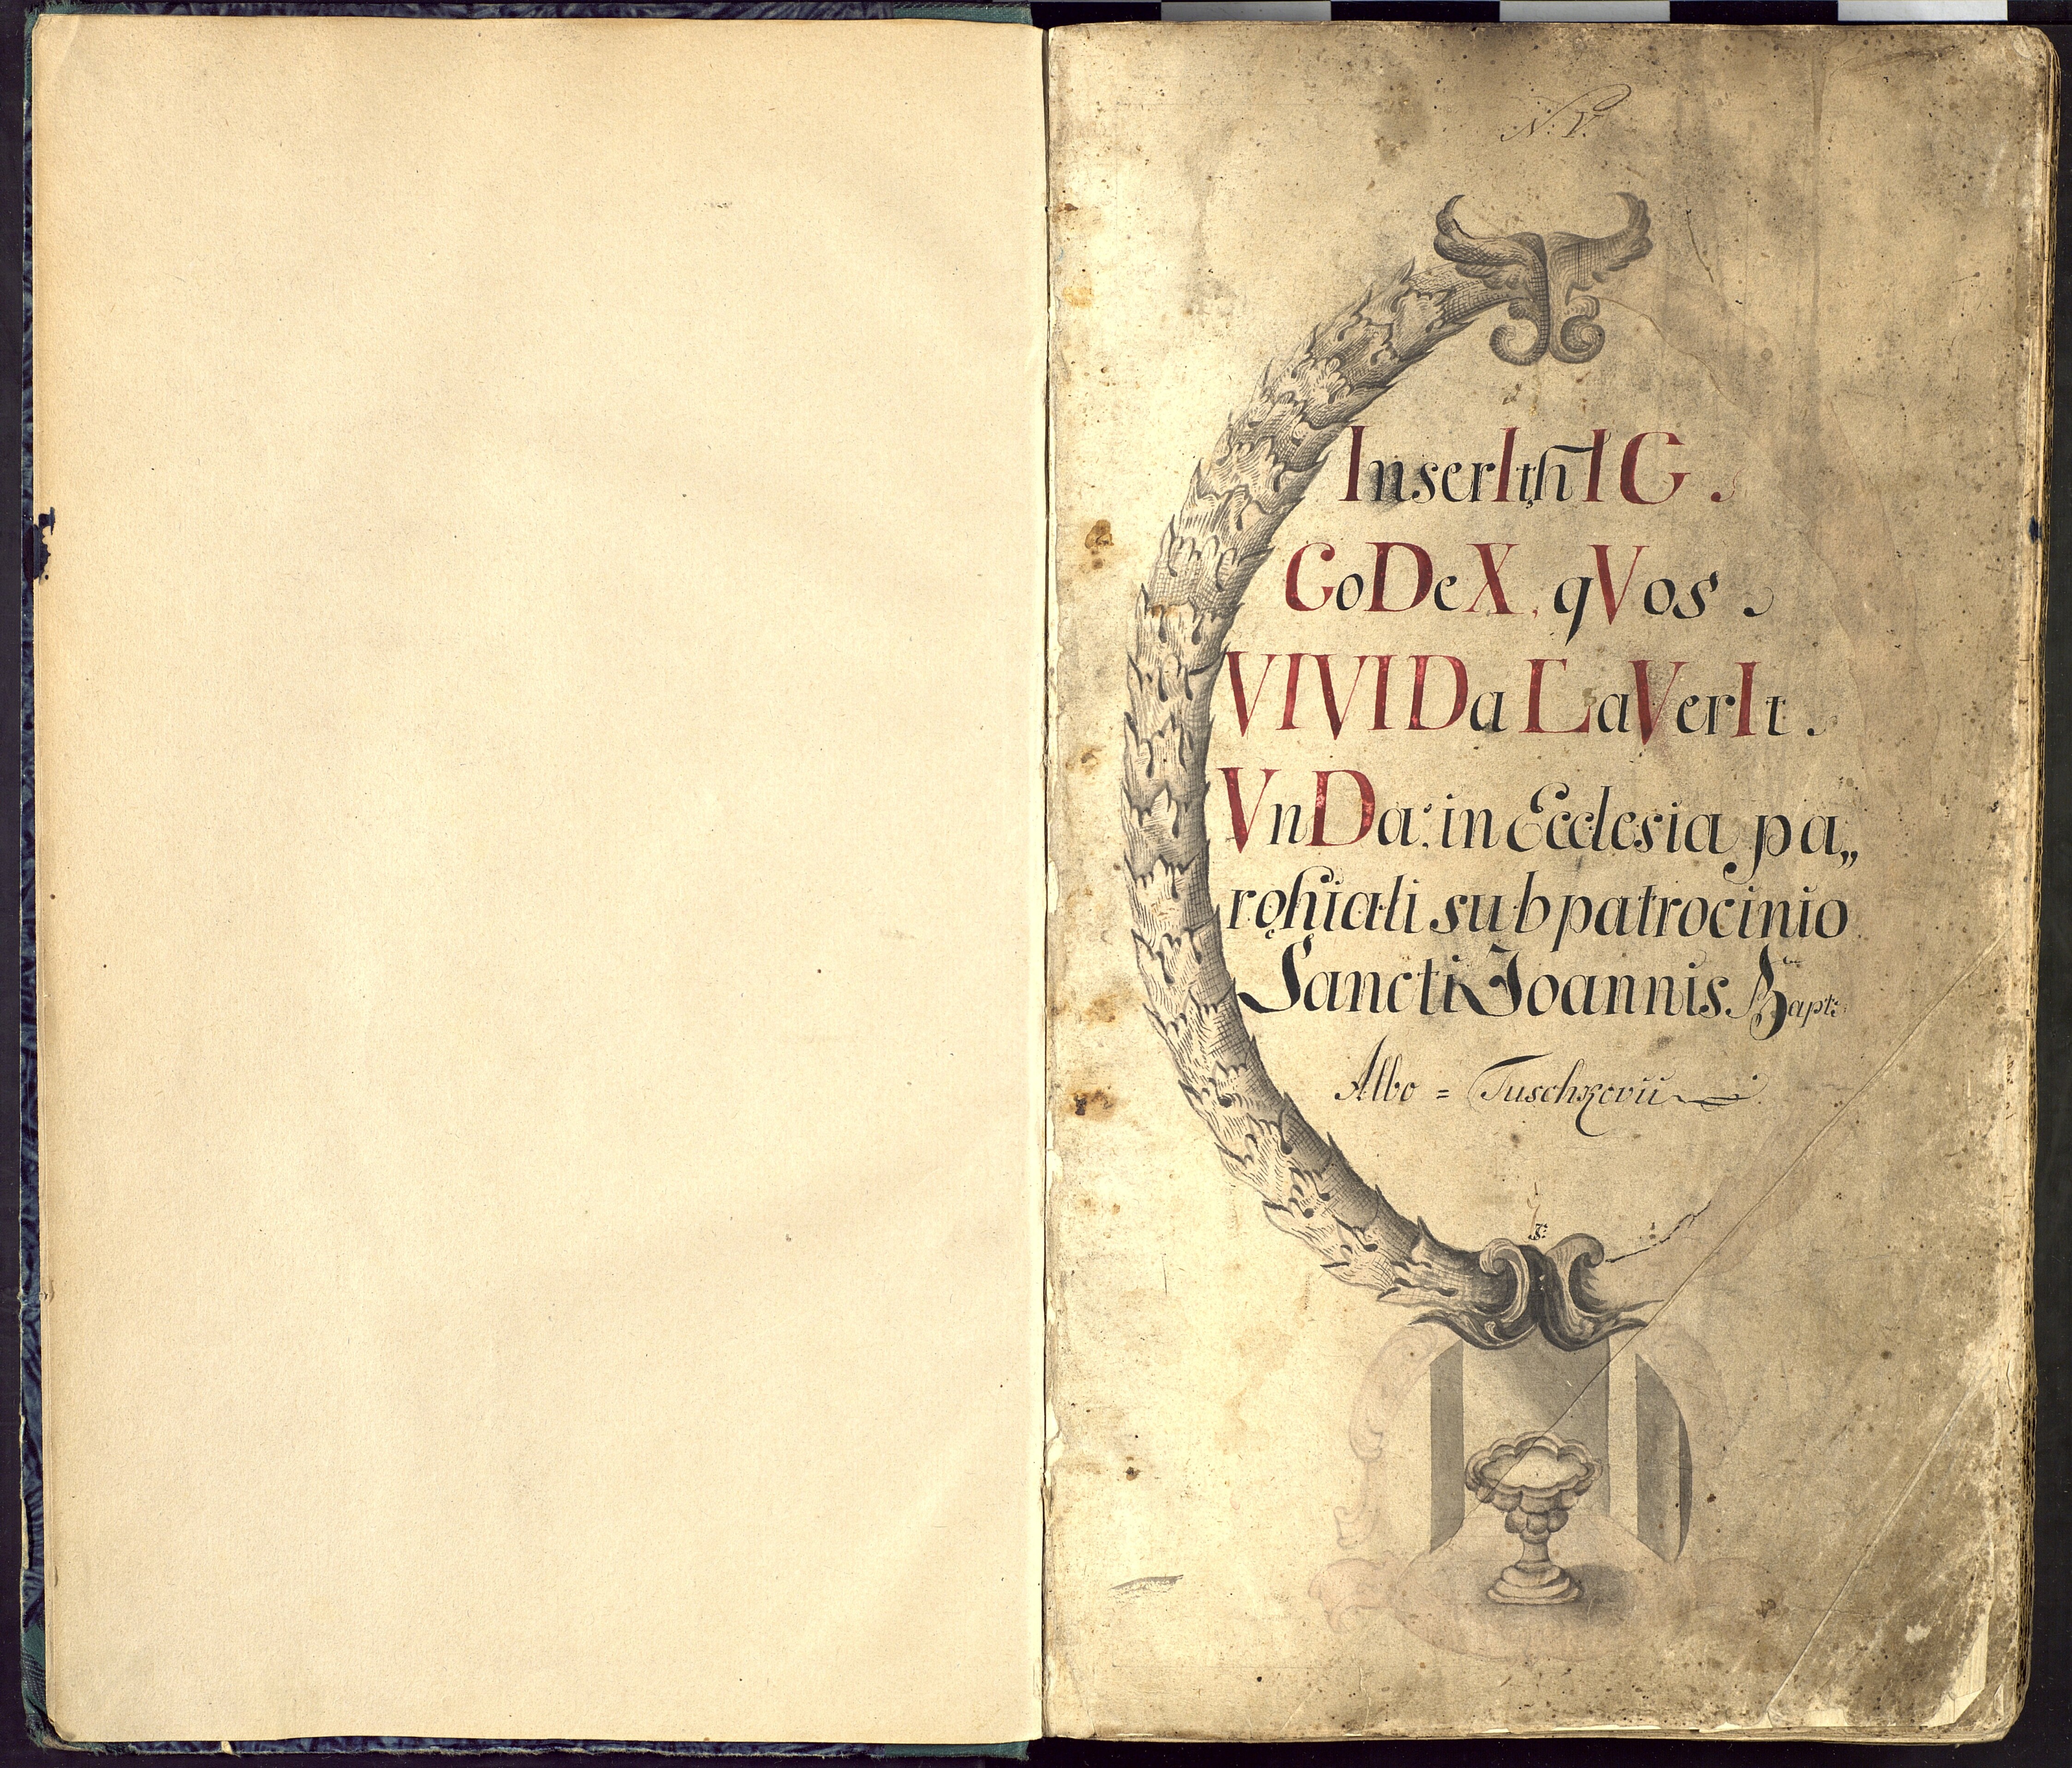 N: V.
InserIt hIC.
CoDeX, qVos.
VIVIDa LaVerIt.
VnDa: in Ecclesia pa„
rochiali sub patrocinio
Sancti Joannis Bapt:
Albo = Tuschkovii